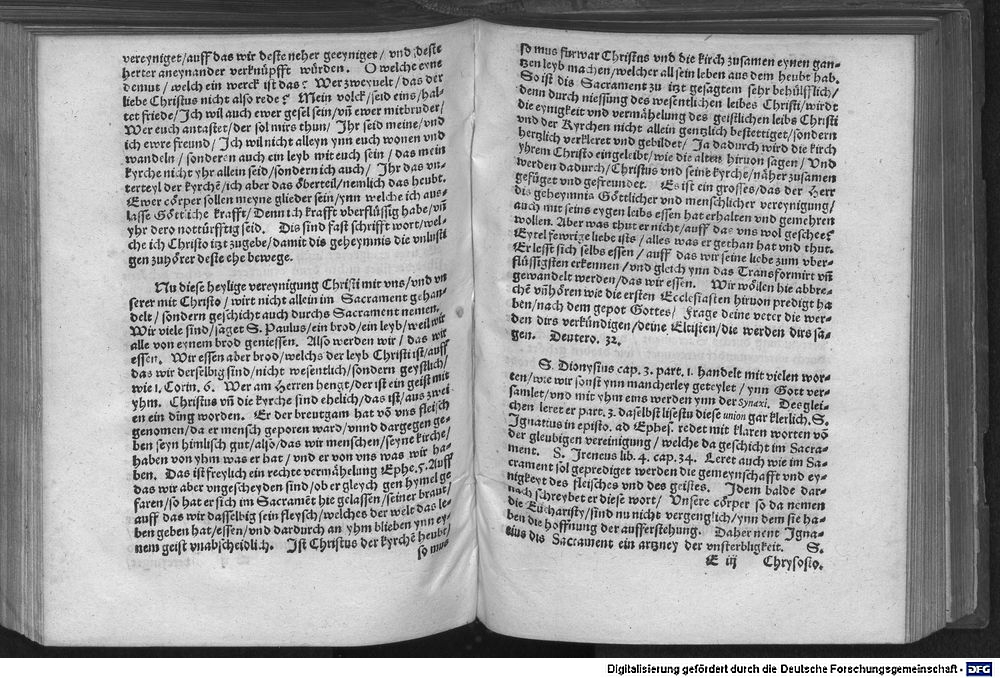 vereyniget/auff das wir deste neher geeyniget/ vnd deste
herter aneynander verknüpfft würden. O welche eyne
demut/ welch ein werck ist das? Wer zweyuelt/ das der
liebe Christus nicht also rede? Mein volck/ seid eins/ hal-
tet friede/ Ich wil auch ewr gesel sein/ vñ ewer mitbruder/
Wer euch antastet/ der sol mirs thun/ Ihr seid meine/ vnd
ich ewre freund/ Ich wil nicht alleyn ynn euch wonen vnd
wandeln/ sonderen auch ein leyb mit euch sein/ das mein
kyrche nicht yhr allein seid/ sondern ich auch/ Ihr das vn-
terteyl der kyrchē/ ich aber das öberteil/ nemlich das heubt.
Ewer cörper sollen meyne glieder sein/ ynn welche ich aus-
lasse Göttliche krafft/ Denn ich krafft vberflüssig habe/ vñ
yhr dero nottürfftig seid. Dis sind fast schrifft wort/ wel-
che ich Christo itzt zugebe/ damit dis geheymnis die vnlusti
gen zuhörer deste ehe bewege.
Nu diese heylige vereynigung Christi mit vns/ vnd vn
serer mit Christo/ wirt nicht allein im Sacrament gehan-
delt/ sondern geschicht auch durchs Sacrament nemen.
Wir viele sind/ saget S. Paulus/ ein brod/ ein leyb/ weil wir
alle von eynem brod geniessen. Also werden wir/ das wir
essen. Wir essen aber brod/ welchs der leyb Christi ist/ auff
das wir derselbig sind/ nicht wesentlich/ sondern geystlich/
wie 1. Corin. 6. Wer am Herren hengt/ der ist ein geist mit
yhm. Christus vñ die kyrche sind ehelich/ das ist/ aus zwei
en ein ding worden. Er der breutgam hat vō vns fleisch
genomen/ da er mensch geporen ward/ vnnd dargegen ge-
ben seyn himlisch gut/ also/ das wir menschen/ seyne kirche/
haben von yhm was er hat/ vnd er von vns was wir ha-
ben. Das ist freylich ein rechte vermähelung Ephe. 5. Auff
das wir aber vngescheyden sind/ ob er gleych gen hymel ge
faren/ so hat er sich im Sacramēt hie gelassen/ seiner braut/
auff das wir dasselbig sein fleysch/ welches der welt das le-
ben geben hat/ essen/ vnd dardurch an yhm blieben ynn ey-
nem geist vnabscheidlich. Ist Christus der kyrchē heubt/
so mus
so mus furwar Christus vnd die kirch zusamen eynen gan-
tzen leyb machen/ welcher all sein leben aus dem heubt hab.
So ist dis Sacrament zu itzt gesagtem sehr behülfflich/
denn durch niessung des wesentlichen leibes Christi/ wirdt
die eynigkeit vnd vermähelung des geistlichen leibs Christi
vnd der Kyrchen nicht allein gentzlich bestettiget/ sondern
hertzlich verkleret vnd gebildet/ Ja dadurch wird die kirch
yhrem Christo eingeleibt/ wie die alten hiruon sagen/ Vnd
werden dadurch/ Christus vnd seine kyrche/ näher zusamen
gefüget vnd gefreundet. Es ist ein grosses/ das der Herr
dis geheymnis Göttlicher vnd menschlicher vereynigung/
auch mit seins eygen leibs essen hat erhalten vnd gemehren
wollen. Aber was thut er nicht/ auff das vns wol geschee?
Eytel fewrige liebe ists/ alles was er gethan hat vnd thut.
Er lesst sich selbs essen/ auff das wir seine liebe zum vber-
flüssigsten erkennen/ vnd gleich ynn das Transformirt vñ
gewandelt werden/ das wir essen. Wir wöllen hie abbre-
chē vñ hören wie die ersten Ecclesiasten hiruon predigt ha
ben/ nach dem gepot Gottes/ Frage deine veter die wer-
den dirs verkündigen/ deine Eltisten/ die werden dirs sa-
gen. Deutero. 32.
S. Dionysius cap. 3. part. 1. handelt mit vielen wor-
ten/ wie wir sonst ynn mancherley geteylet/ ynn Gott ver-
samlet/ vnd mit yhm eins werden ynn der Synaxi. Desglei-
chen leret er part. 3. daselbst lisestu diese union gar klerlich. S.
Ignatius in episto. ad Ephes. redet mit klaren worten vō
der gleubigen vereinigung/ welche da geschicht im Sacra-
ment. S. Ireneus lib. 4. cap. 34. Leret auch wie im Sa-
crament sol geprediget werden die gemeynschafft vnd ey-
nigkeyt des fleisches vnd des geistes. Idem balde dar-
nach schreybet er diese wort/ Vnsere cörper so da nemen
die Eucharisty/ sind nu nicht vergenglich/ ynn dem sie ha-
ben die hoffnung der aufferstehung. Daher nent Igna-
tius dis Sacrament ein artzney der vnsterbligkeit. S.
E iij Chrysosto.
Digitalisierung gefördert durch die Deutsche Forschungsgemeinschaft - DFG